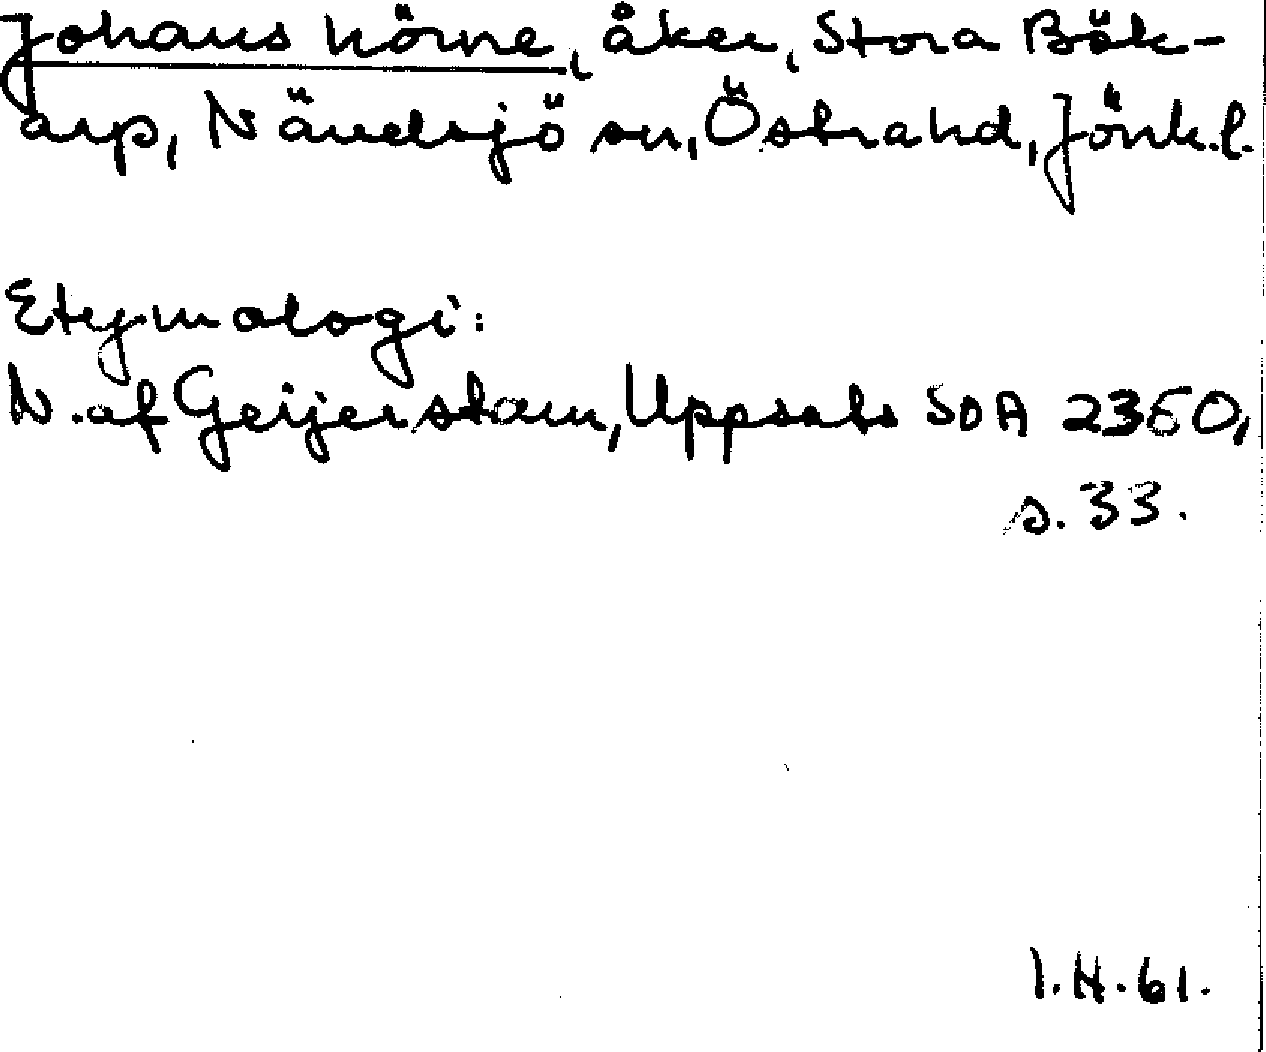 Johans hörne, åker, Stora Bök-
arp, Nävelsjö sn, Östra hd, Jönk.l.
Etymologi:
N. af Geijerstam, Uppsats SOA 2350,
s. 33.
I.H. 61.